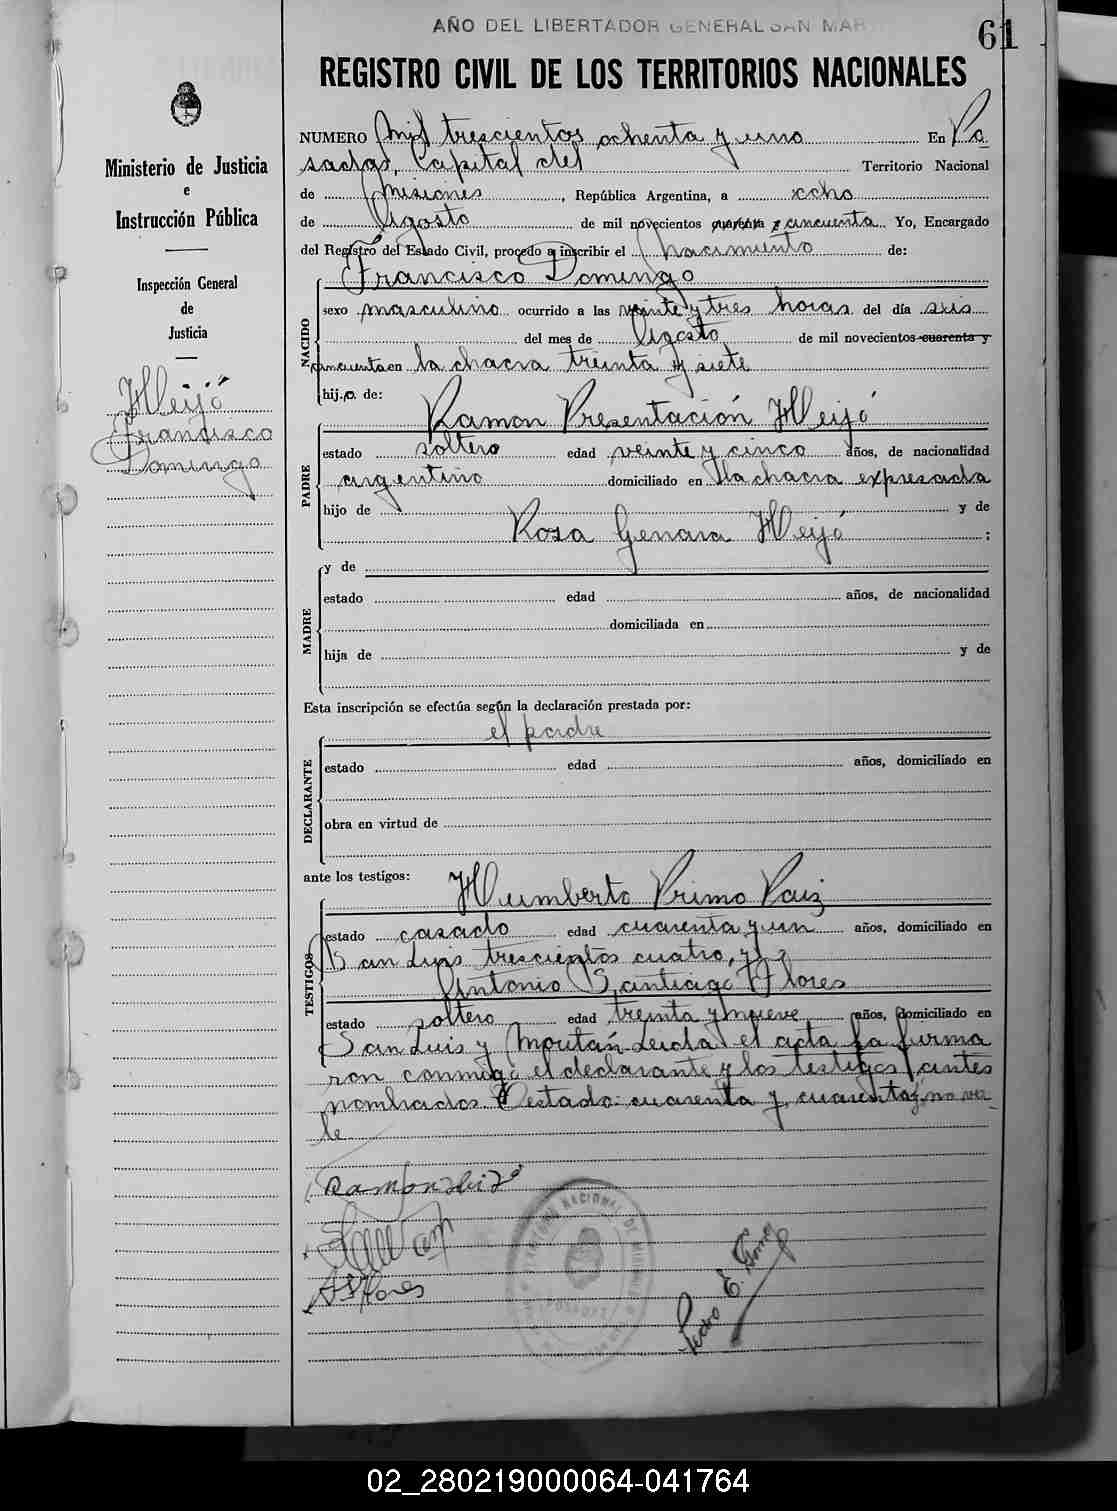 AÑO DEL LIBERTADOR GENERAL SAN MAR
61
REGISTRO CIVIL DE LOS TERRITORIOS NACIONALES
Ministerio de Justicia
e
Instrucción Pública
Inspección General
de
Justicia
Heijó
Francisco
Domingo
NUMERO Mil trescientos ochenta y uno En Po
sadas, Capital del Territorio Nacional
de Misiones, República Argentina, a ocho
de Agosto de mil novecientos cuarenta y cincuenta Yo, Encargado
del Registro del Estado Civil, procedo a inscribir el nacimiento de:
Francisco Domingo
NACIDO
sexo masculino ocurrido a las veinte y tres horas del día seis
del mes de Agosto de mil novecientos cuarenta y
cincuenta en la chacra treinta y siete
hij.o. de:
Ramon Presentación Heijó
PADRE
estado soltero edad veinte y cinco años, de nacionalidad
argentino domiciliado en la chacra expresada
hijo de y de
Rosa Genara Heijó ;
MADRE
y de
estado edad años, de nacionalidad
domiciliada en
hija de y de
Esta inscripción se efectúa según la declaración prestada por:
el padre
DECLARANTE
estado edad años, domiciliado en
obra en virtud de
ante los testigos: Humberto Primo Paiz
TESTIGOS
estado casado edad cuarenta y un años, domiciliado en
San Luis trescientos cuatro, y
Antonio Santiago Flores
estado soltero edad treinta y nueve años, domiciliado en
San Luis y Moritán. Leida el acta la firma
ron conmigo el declarante y los testigos antes
nombrados. Testado: cuarenta y, cuarenta y, no va
le
Ramon
ASFlores
Pedro E.
TERRITORIO NACIONAL DE MISIONES
02_280219000064-041764